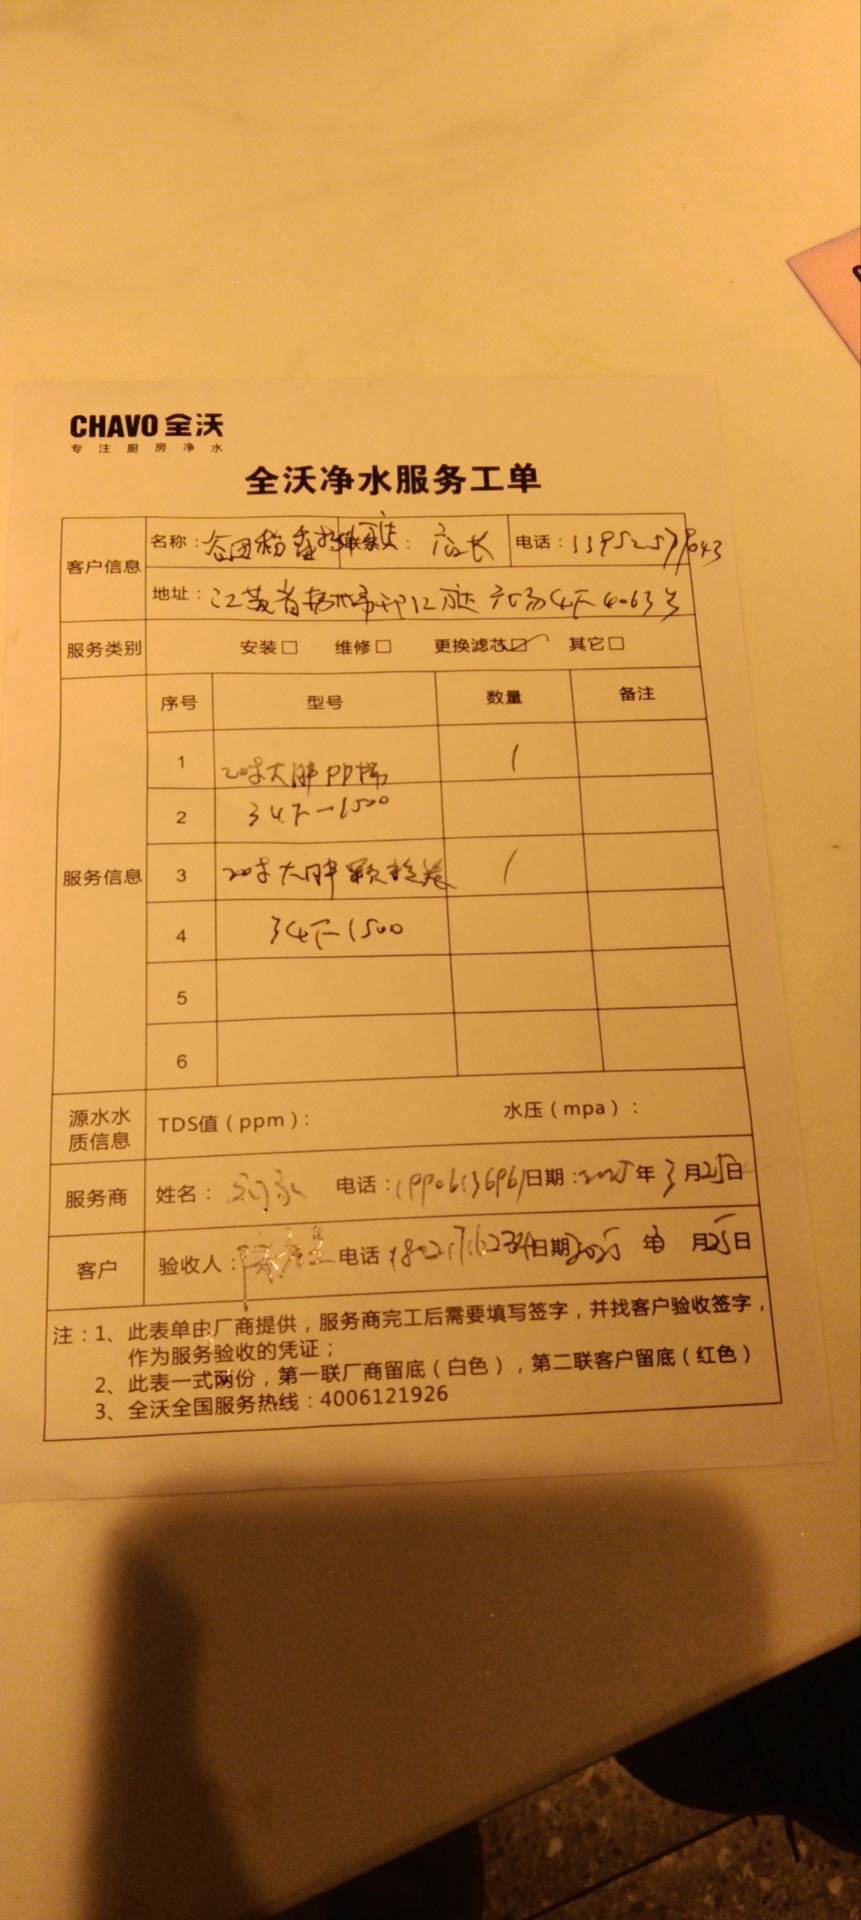 CHAVO 全沃
专注厨房净水
全沃净水服务工单
客户信息 名称： 店长 电话：
地址：江苏省扬州市邗江万达广场4F 4063号
服务类别 安装□ 维修□ 更换滤芯☑ 其它□
序号 型号 数量 备注
服务信息
1 20寸大胖PP棉 1
2 34F-1500
3 20寸大胖颗粒炭 1
4 34F-1500
5
6
源水水质信息 TDS值（ppm）： 水压（mpa）：
服务商 姓名： 电话：19906136961 日期：2025年3月25日
客户 验收人： 电话 日期2025年 月25日
注：1、此表单由厂商提供，服务商完工后需要填写签字，并找客户验收签字，
作为服务验收的凭证；
2、此表一式两份，第一联厂商留底（白色），第二联客户留底（红色）
3、全沃全国服务热线：4006121926